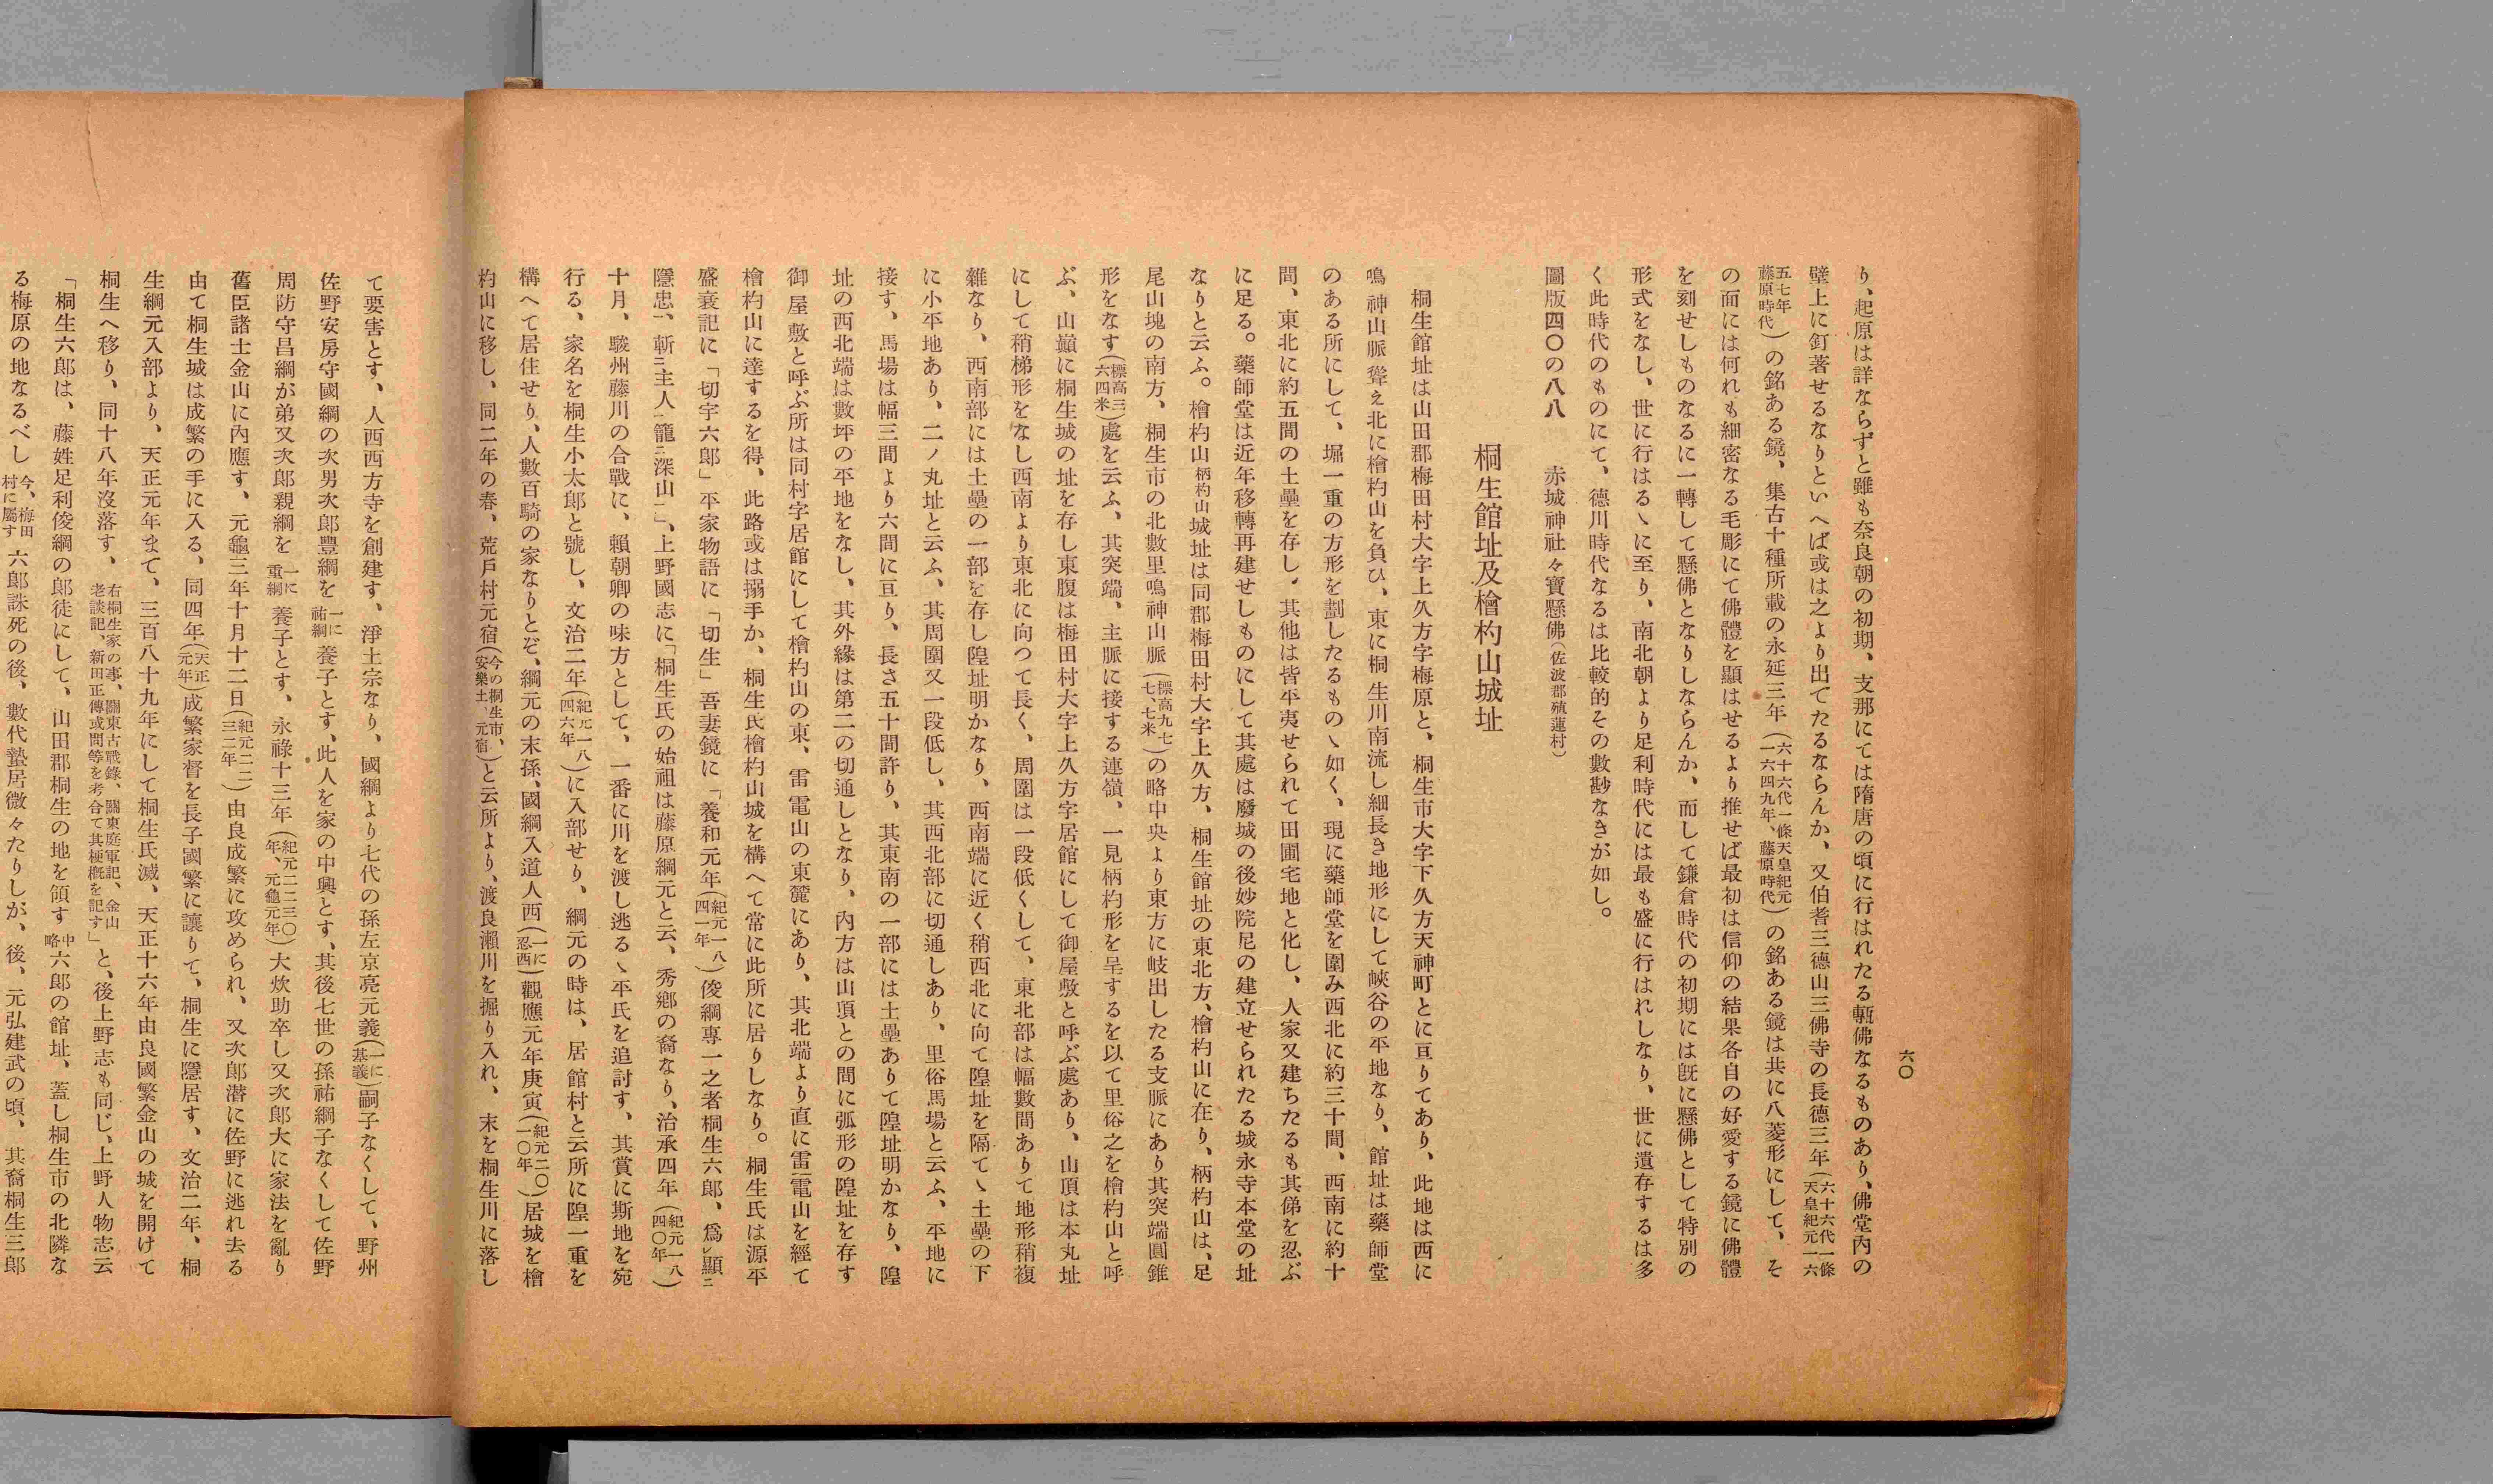 六〇
り、起原は詳ならずと雖も奈良朝の初期、支那にては隋唐の頃に行はれたる甎佛なるものあり、佛堂內の
壁上に釘著せるなりといへば或は之より出てたるならんか、又伯耆三德山三佛寺の長德三年(六十六代一條天皇紀元一六
五七年藤原時代)の銘ある鏡、集古十種所載の永延三年(六十六代一條天皇紀元一六四九年、藤原時代)の銘ある鏡は共に八菱形にして、そ
の面には何れも細密なる毛彫にて佛體を顯はせるより推せば最初は信仰の結果各自の好愛する鏡に佛體
を刻せしものなるに一轉して懸佛となりしならんか、而して鎌倉時代の初期には旣に懸佛として特別の
形式をなし、世に行はるゝに至り、南北朝より足利時代には最も盛に行はれしなり、世に遺存するは多
く此時代のものにて、德川時代なるは比較的その數尠なきが如し。
圖版四〇の八八　赤城神社々寶懸佛(佐波郡殖蓮村)
桐生館址及檜杓山城址
桐生館址は山田郡梅田村大字上久方字梅原と、桐生市大字下久方天神町とに亘りてあり、此地は西に
鳴神山脈聳え北に檜杓山を負ひ、東に桐生川南流し細長き地形にして峽谷の平地なり、館址は藥師堂
のある所にして、堀一重の方形を劃したるものゝ如く、現に藥師堂を圍み西北に約三十間、西南に約十
間、東北に約五間の土壘を存し、其他は皆平夷せられて田圃宅地と化し、人家又建ちたるも其俤を忍ぶ
に足る。藥師堂は近年移轉再建せしものにして其處は廢城の後妙院尼の建立せられたる城永寺本堂の址
なりと云ふ。檜杓山柄杓山城址は同郡梅田村大字上久方、桐生館址の東北方、檜杓山に在り、柄杓山は、足
尾山塊の南方、桐生市の北數里鳴神山脈(標高九七七、七米)の略中央より東方に岐出したる支脈にあり其突端圓錐
形をなす(標高三六四米)處を云ふ、其突端、主脈に接する連嶺、一見柄杓形を呈するを以て里俗之を檜杓山と呼
ぶ、山巓に桐生城の址を存し東腹は梅田村大字上久方字居館にして御屋敷と呼ぶ處あり、山頂は本丸址
にして稍梯形をなし西南より東北に向つて長く、周圍は一段低くして、東北部は幅數間ありて地形稍複
雜なり、西南部には土壘の一部を存し隍址明かなり、西南端に近く稍西北に向て隍址を隔てゝ土壘の下
に小平地あり、二ノ丸址と云ふ、其周圍又一段低し、其西北部に切通しあり、里俗馬場と云ふ、平地に
接す、馬場は幅三間より六間に亘り、長さ五十間許り、其東南の一部には土壘ありて隍址明かなり、隍
址の西北端は數坪の平地をなし、其外緣は第二の切通しとなり、內方は山頂との間に弧形の隍址を存す
御屋敷と呼ぶ所は同村字居館にして檜杓山の東、雷電山の東麓にあり、其北端より直に雷電山を經て
檜杓山に達するを得、此路或は搦手か、桐生氏檜杓山城を構へて常に此所に居りしなり。桐生氏は源平
盛衰記に「切宇六郎」平家物語に「切生」吾妻鏡に「養和元年(紀元一八四一年)俊綱專一之者桐生六郎、爲レ顯ニ
隱忠一、斬ニ主人一籠ニ深山一」、上野國志に「桐生氏の始祖は藤原綱元と云、秀鄕の裔なり、治承四年(紀元一八四〇年)
十月、駿州藤川の合戰に、賴朝卿の味方として、一番に川を渡し逃るゝ平氏を追討す、其賞に斯地を宛
行る、家名を桐生小太郎と號し、文治二年(紀元一八四六年)に入部せり、綱元の時は、居館村と云所に隍一重を
構へて居住せり、人數百騎の家なりとぞ、綱元の末孫、國綱入道人西(一に忍西)觀應元年庚寅(紀元二〇一〇年)居城を檜
杓山に移し、同二年の春、荒戶村元宿(今の桐生市、安樂土、元宿)と云所より、渡良瀨川を掘り入れ、末を桐生川に落し
て要害とす、人西西方寺を創建す、淨土宗なり、國綱より七代の孫左京亮元義(一に基義)嗣子なくして、野州
佐野安房守國綱の次男次郎豐綱を一に祐綱養子とす、此人を家の中興とす、其後七世の孫祐綱子なくして佐野
周防守昌綱が弟又次郎親綱を一に重綱養子とす、永祿十三年(紀元二二三〇年、元龜元年)大炊助卒し又次郎大に家法を亂り
舊臣諸士金山に內應す、元龜三年十月十二日(紀元二二三二年)由良成繁に攻められ、又次郎潛に佐野に逃れ去る
由て桐生城は成繁の手に入る、同四年(天正元年)成繁家督を長子國繁に讓りて、桐生に隱居す、文治二年、桐
生綱元入部より、天正元年まて、三百八十九年にして桐生氏滅、天正十六年由良國繁金山の城を開けて
桐生へ移り、同十八年沒落す、右桐生家の事、關東古戰錄、關東庭軍記、金山老談記、新田正傳或問等を考合て其梗槪を記す」と、後上野志も同じ、上野人物志云
「桐生六郎は、藤姓足利俊綱の郎徒にして、山田郡桐生の地を領す中略六郎の館址、蓋し桐生市の北隣な
る梅原の地なるべし今、梅田村に屬す六郎誅死の後、數代蟄居微々たりしが、後、元弘建武の頃、其裔桐生三郎